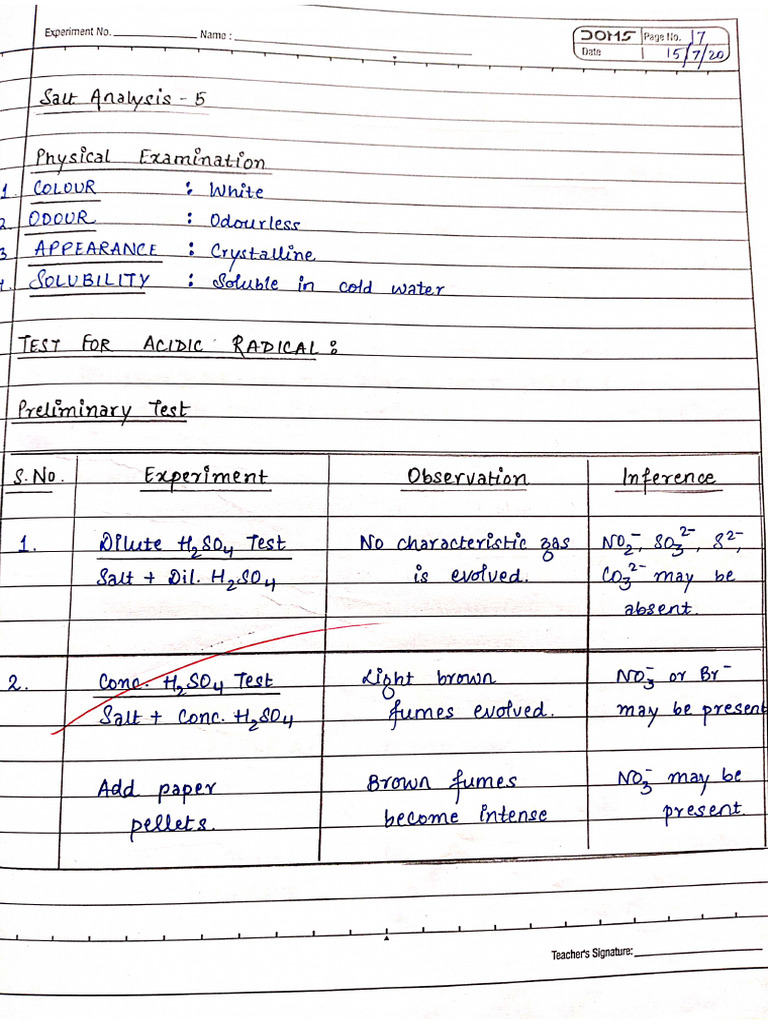 Experiment No. Name :
DOMS Page No. 17
Date 15/7/20
Salt Analysis - 5
Physical Examination
1. COLOUR : White
2 ODOUR : Odourless
3 APPEARANCE : Crystalline
4. SOLUBILITY : Soluble in cold water
TEST FOR ACIDIC RADICAL :
Preliminary Test
S.No. Experiment Observation Inference
1. Dilute H₂SO₄ Test No characteristic gas NO₂⁻, SO₃²⁻, S²⁻,
Salt + Dil. H₂SO₄ is evolved. CO₃²⁻ may be
absent.
2. Conc. H₂SO₄ Test Light brown NO₃⁻ or Br⁻
Salt + Conc. H₂SO₄ fumes evolved. may be present
Add paper Brown fumes NO₃⁻ may be
pellets. become intense present.
Teacher's Signature: